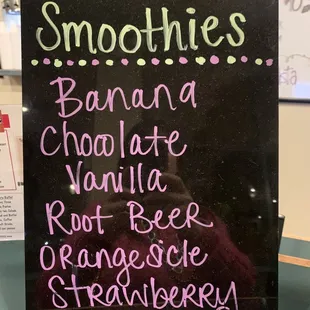 Smoothies
Banana
Chocolate
Vanilla
Root Beer
Orangesicle
Strawberry